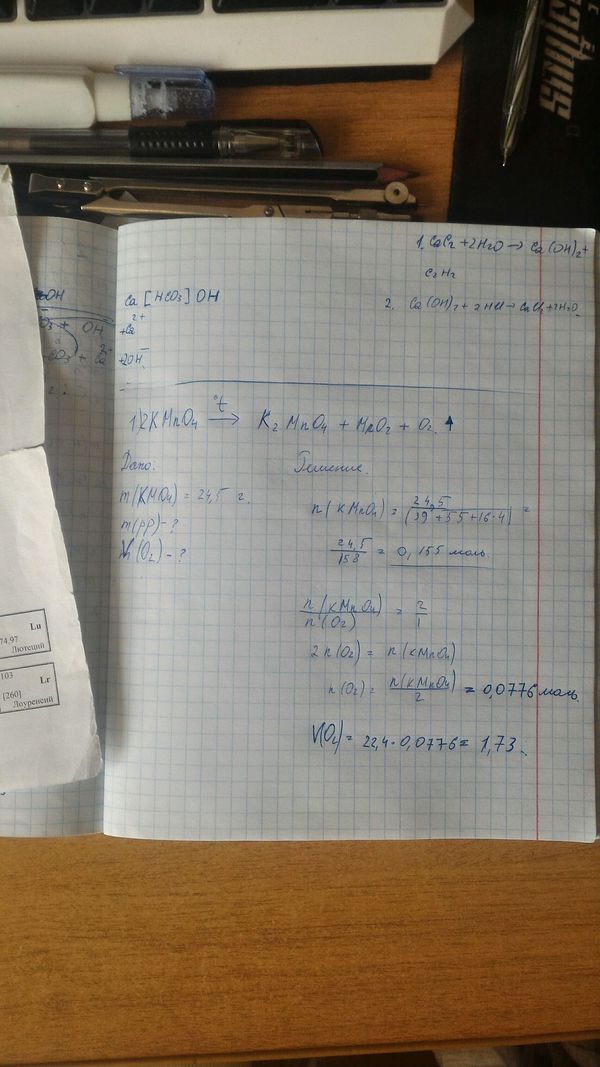 1. CaC₂ + 2H₂O → Ca(OH)₂ +
C₂H₂
2. Ca(OH)₂ + 2HCl → CaCl₂ + 2H₂O
OH
Ca[HCO₃]OH
+Ca²⁺
+2OH⁻
1) 2KMnO₄ →t° K₂MnO₄ + MnO₂ + O₂ ↑
Дано:
Решение.
m(KMO₄) = 24,5 г.
m(рр) - ?
V(O₂) - ?
n(KMnO₄) = 24,5/(39 + 55 + 16·4) =
24,5/158 = 0,155 моль.
n(KMnO₄)/n(O₂) = 2/1
2n(O₂) = n(KMnO₄)
n(O₂) = n(KMnO₄)/2 = 0,0776 моль.
V(O₂) = 22,4 · 0,0776 = 1,73
Lu
74,97
Лютеций
103
Lr
[260]
Лоуренсий